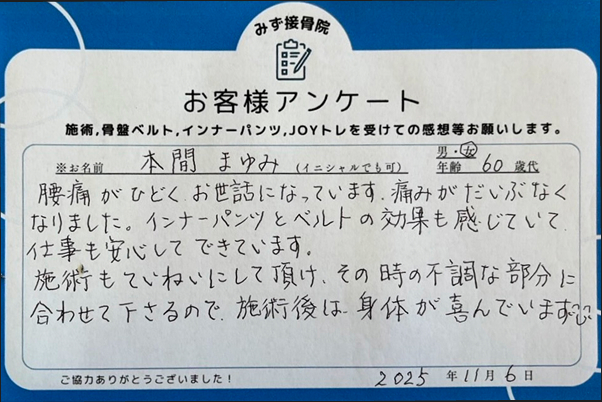 みず接骨院
お客様アンケート
施術,骨盤ベルト,インナーパンツ,JOYトレを受けての感想等お願いします。
※お名前 本間 まゆみ (イニシャルでも可) 男・女 年齢 60 歳代
腰痛がひどく、お世話になっています。痛みがだいぶなく
なりました。インナーパンツとベルトの効果も感じていて、
仕事も安心してできています。
施術もていねいにして頂け、その時の不調な部分に
合わせて下さるので、施術後は、身体が喜んでいます
ご協力ありがとうございました! 2025 年 11 月 6 日